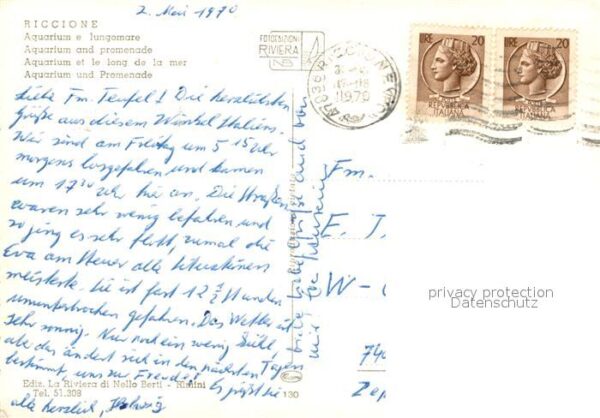 2. Mai 1970
RICCIONE
Aquarium e lungomare
Aquarium and promenade
Aquarium et le long de la mer
Aquarium und Promenade
FOTOEDIZIONI
RIVIERA
NB
RICCIONE
1970
LIRE 20
REPUBBLICA
ITALIANA
LIRE 20
REPUBBLICA
ITALIANA
Liebe Fm. Teufel! Die herzlichsten
Grüße aus diesem Winkel Italiens.
Wir sind am Freitag um 5 15 Uhr
morgens losgefahren und kamen
um 17 30 Uhr hier an. Die Straßen
waren sehr wenig befahren und
so ging es sehr flott, zumal die
Eva am Steuer alle Situationen
meisterte. Sie ist fast 12 Stunden
ununterbrochen gefahren. Das Wetter ist
sehr sonnig. Nur noch ein wenig kühl,
aber das ändert sich in den nächsten Tagen
bestimmt, uns zur Freude! Es grüßt Sie
alle herzlich, Hedwig
viele liebe Grüße auch von
mir
Fm.
E. T
W-
740
privacy protection
Datenschutz
Ediz. La Riviera di Nello Berti - Rimini
Tel. 51.308
130